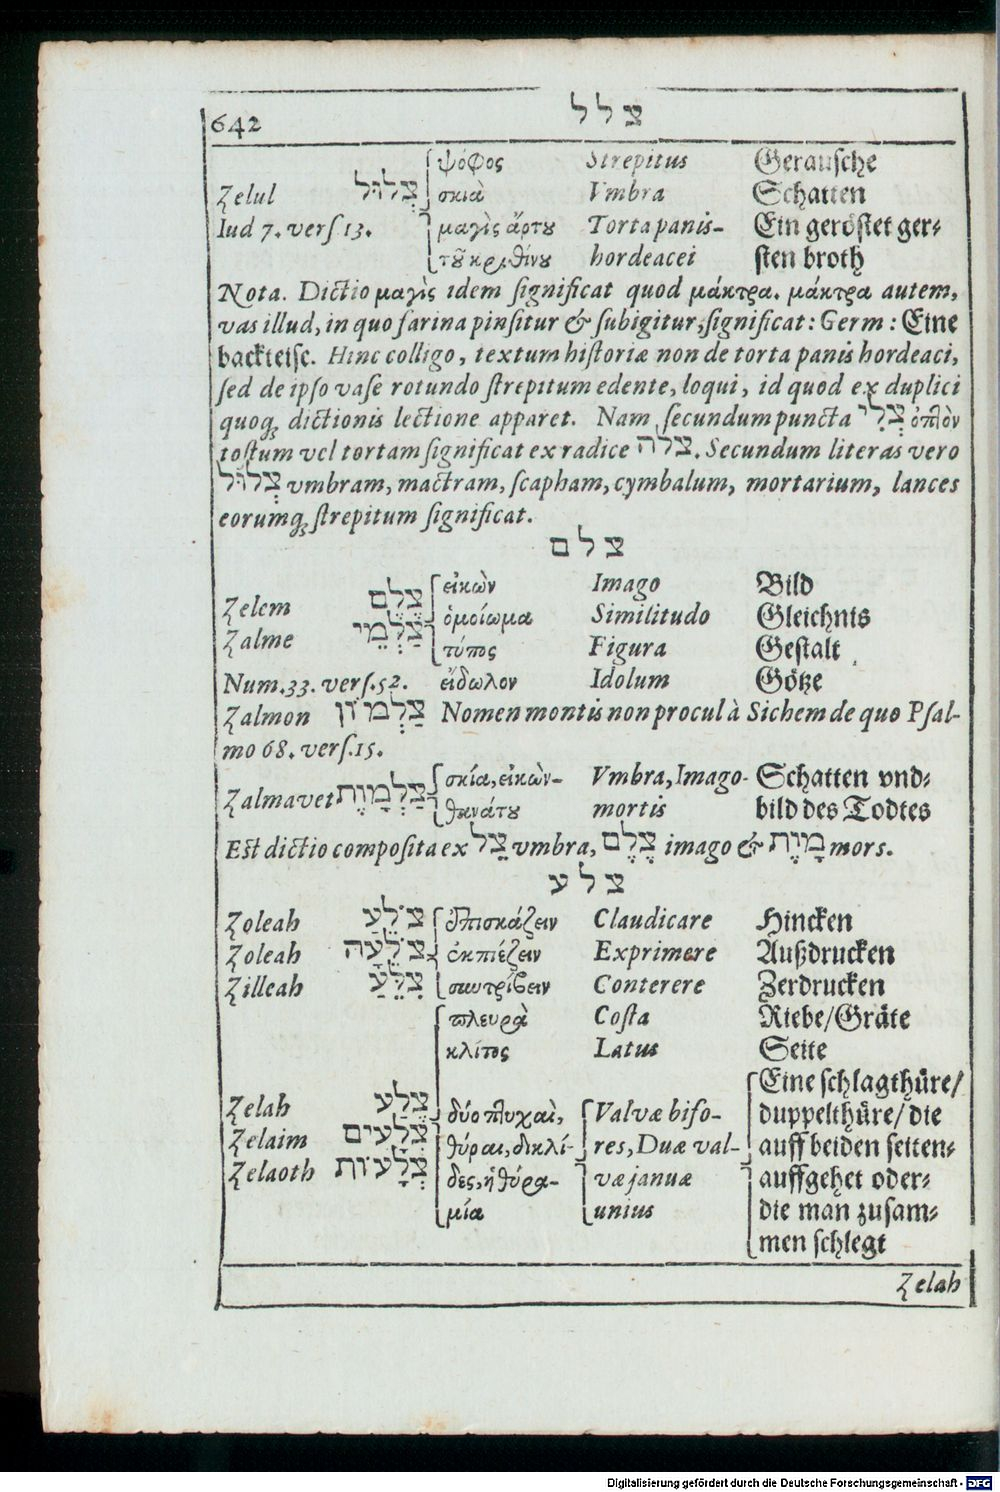 642 צלל
ψόφος Strepitus Gerausche
Zelul צְלוּל σκιὰ Vmbra Schatten
Iud 7. vers 13. μαγὶς ἄρτου Torta panis- Ein geröstet ger-
τοῦ κριθίνου hordeacei sten broth
Nota. Dictio μαγὶς idem significat quod μάκτρα. μάκτρα autem,
vas illud, in quo farina pinsitur & subigitur, significat: Germ: Eine
backteisc. Hinc colligo, textum historiæ non de torta panis hordeaci,
sed de ipso vase rotundo strepitum edente, loqui, id quod ex duplici
quoq; dictionis lectione apparet. Nam secundum puncta צְלִי ὀπτὸν
tostum vel tortam significat ex radice צלה. Secundum literas vero
צְלוּל vmbram, mactram, scapham, cymbalum, mortarium, lances
eorumq; strepitum significat.
צלם
εἰκὼν Imago Bild
Zelem צֶלֶם ὁμοίωμα Similitudo Gleichnis
Zalme צַלְמֵי τύπος Figura Gestalt
Num. 33. vers. 52. εἴδωλον Idolum Götze
Zalmon צַלְמוֹן Nomen montis non procul à Sichem de quo Psal-
mo 68. vers. 15.
Zalmavet צַלְמָוֶת σκία, εἰκὼν- Vmbra, Imago- Schatten vnd-
θανάτου mortis bild des Todtes
Est dictio composita ex צֵל vmbra, צֶלֶם imago & מָוֶת mors.
צלע
Zoleah צוֹלֵעַ ἐπισκάζειν Claudicare Hincken
Zoleah צוֹלֵעָה ἐκπιέζειν Exprimere Außdrucken
Zilleah צִלֵּעַ συντρίβειν Conterere Zerdrucken
πλευρὰ Costa Riebe/Gräte
κλίτος Latus Seite
Eine schlagthüre/
Zelah צֶלַע δύο πτυχαὶ, Valvæ bifo- duppelthüre/ die
Zelaim צְלָעִים θύραι, δικλί- res, Duæ val- auff beiden seiten-
Zelaoth צְלָעוֹת δες, ἡ θύρα- væ januæ auffgehet oder-
μία unius die man zusam-
men schlegt
Zelah
Digitalisierung gefördert durch die Deutsche Forschungsgemeinschaft - DFG